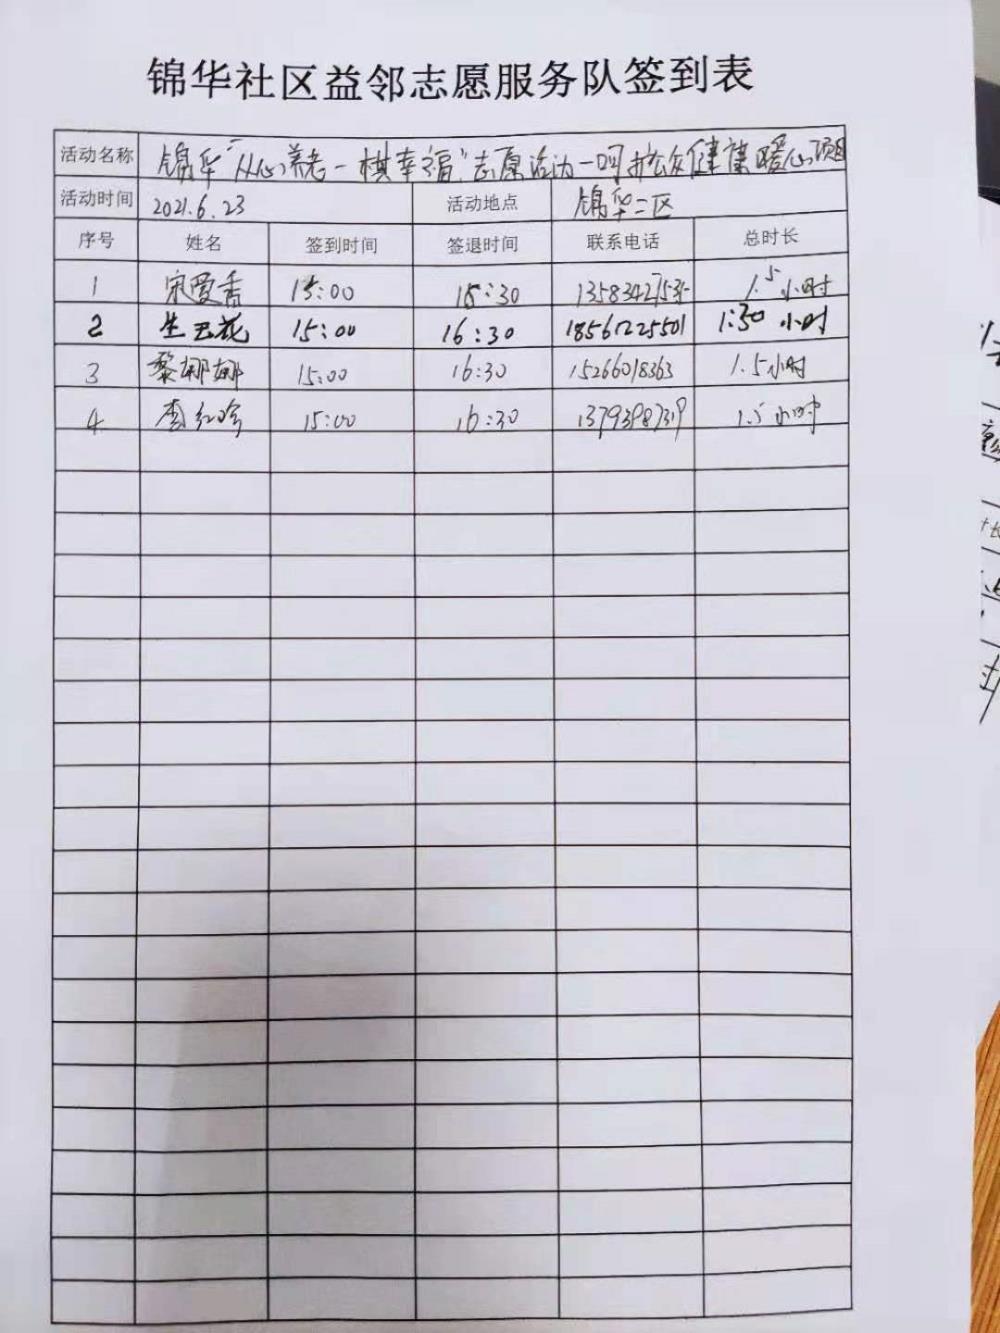 锦华社区益邻志愿服务队签到表
活动名称 锦华"从心养老一棋幸福"志愿活动一呵护公众健康暖心项目
活动时间 2021.6.23 活动地点 锦华二区
序号 姓名 签到时间 签退时间 联系电话 总时长
1 宋爱香 15:00 16:30 1.5小时
2 生云花 15:00 16:30 18561225501 1:30 小时
3 黎娜娜 15:00 16:30 15266018363 1.5小时
4 李红珍 15:00 16:30 13793987319 1.5小时